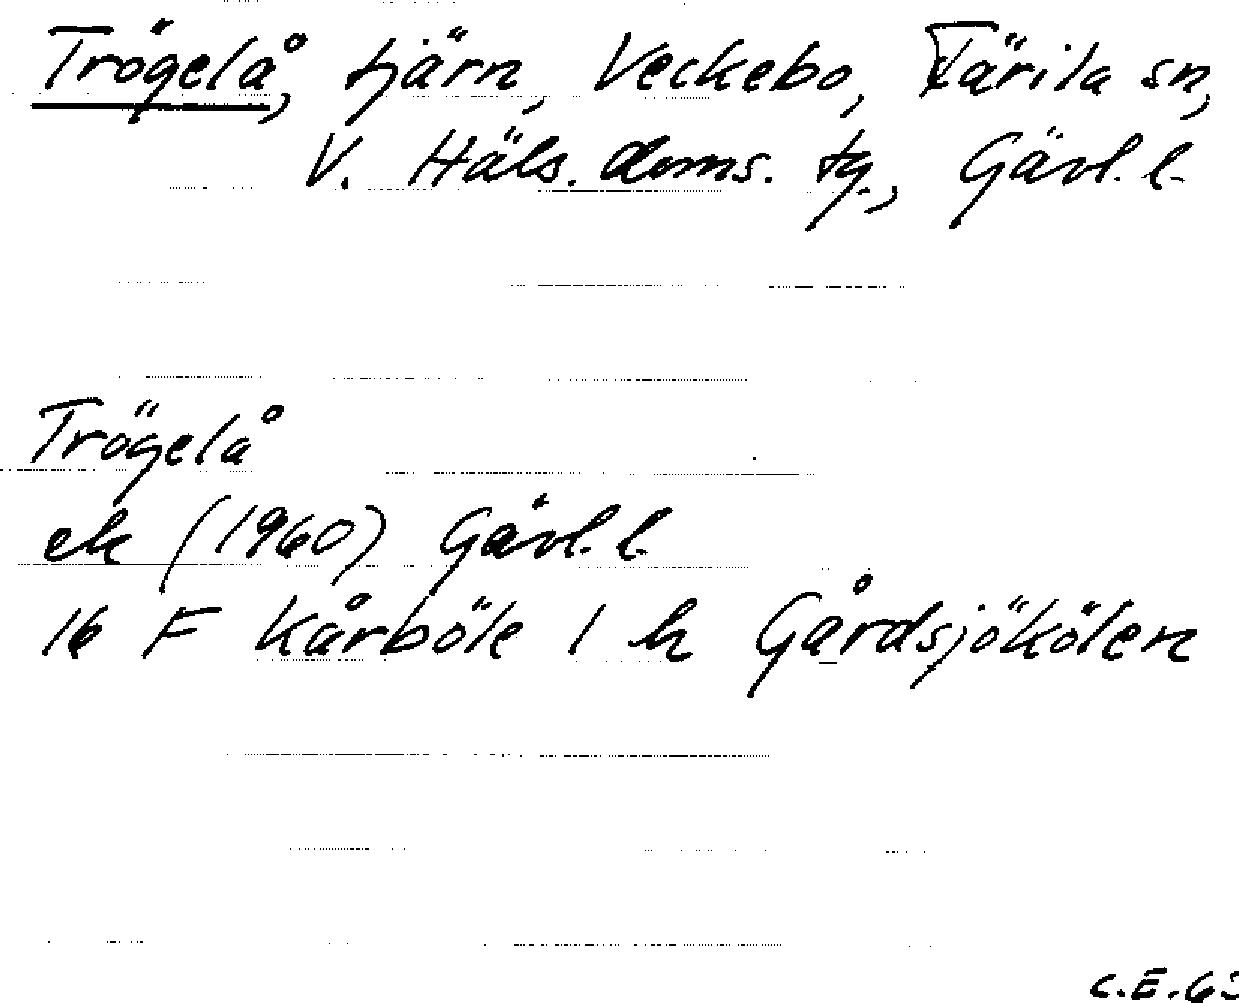 Trögelå, tjärn, Veckebo, Färila sn,
V. Häls. doms. tg., Gävl. l.
Trögelå
ek (1960) Gävl. l.
16 F Kårböle 1 h Gårdsjökölen
C.E.